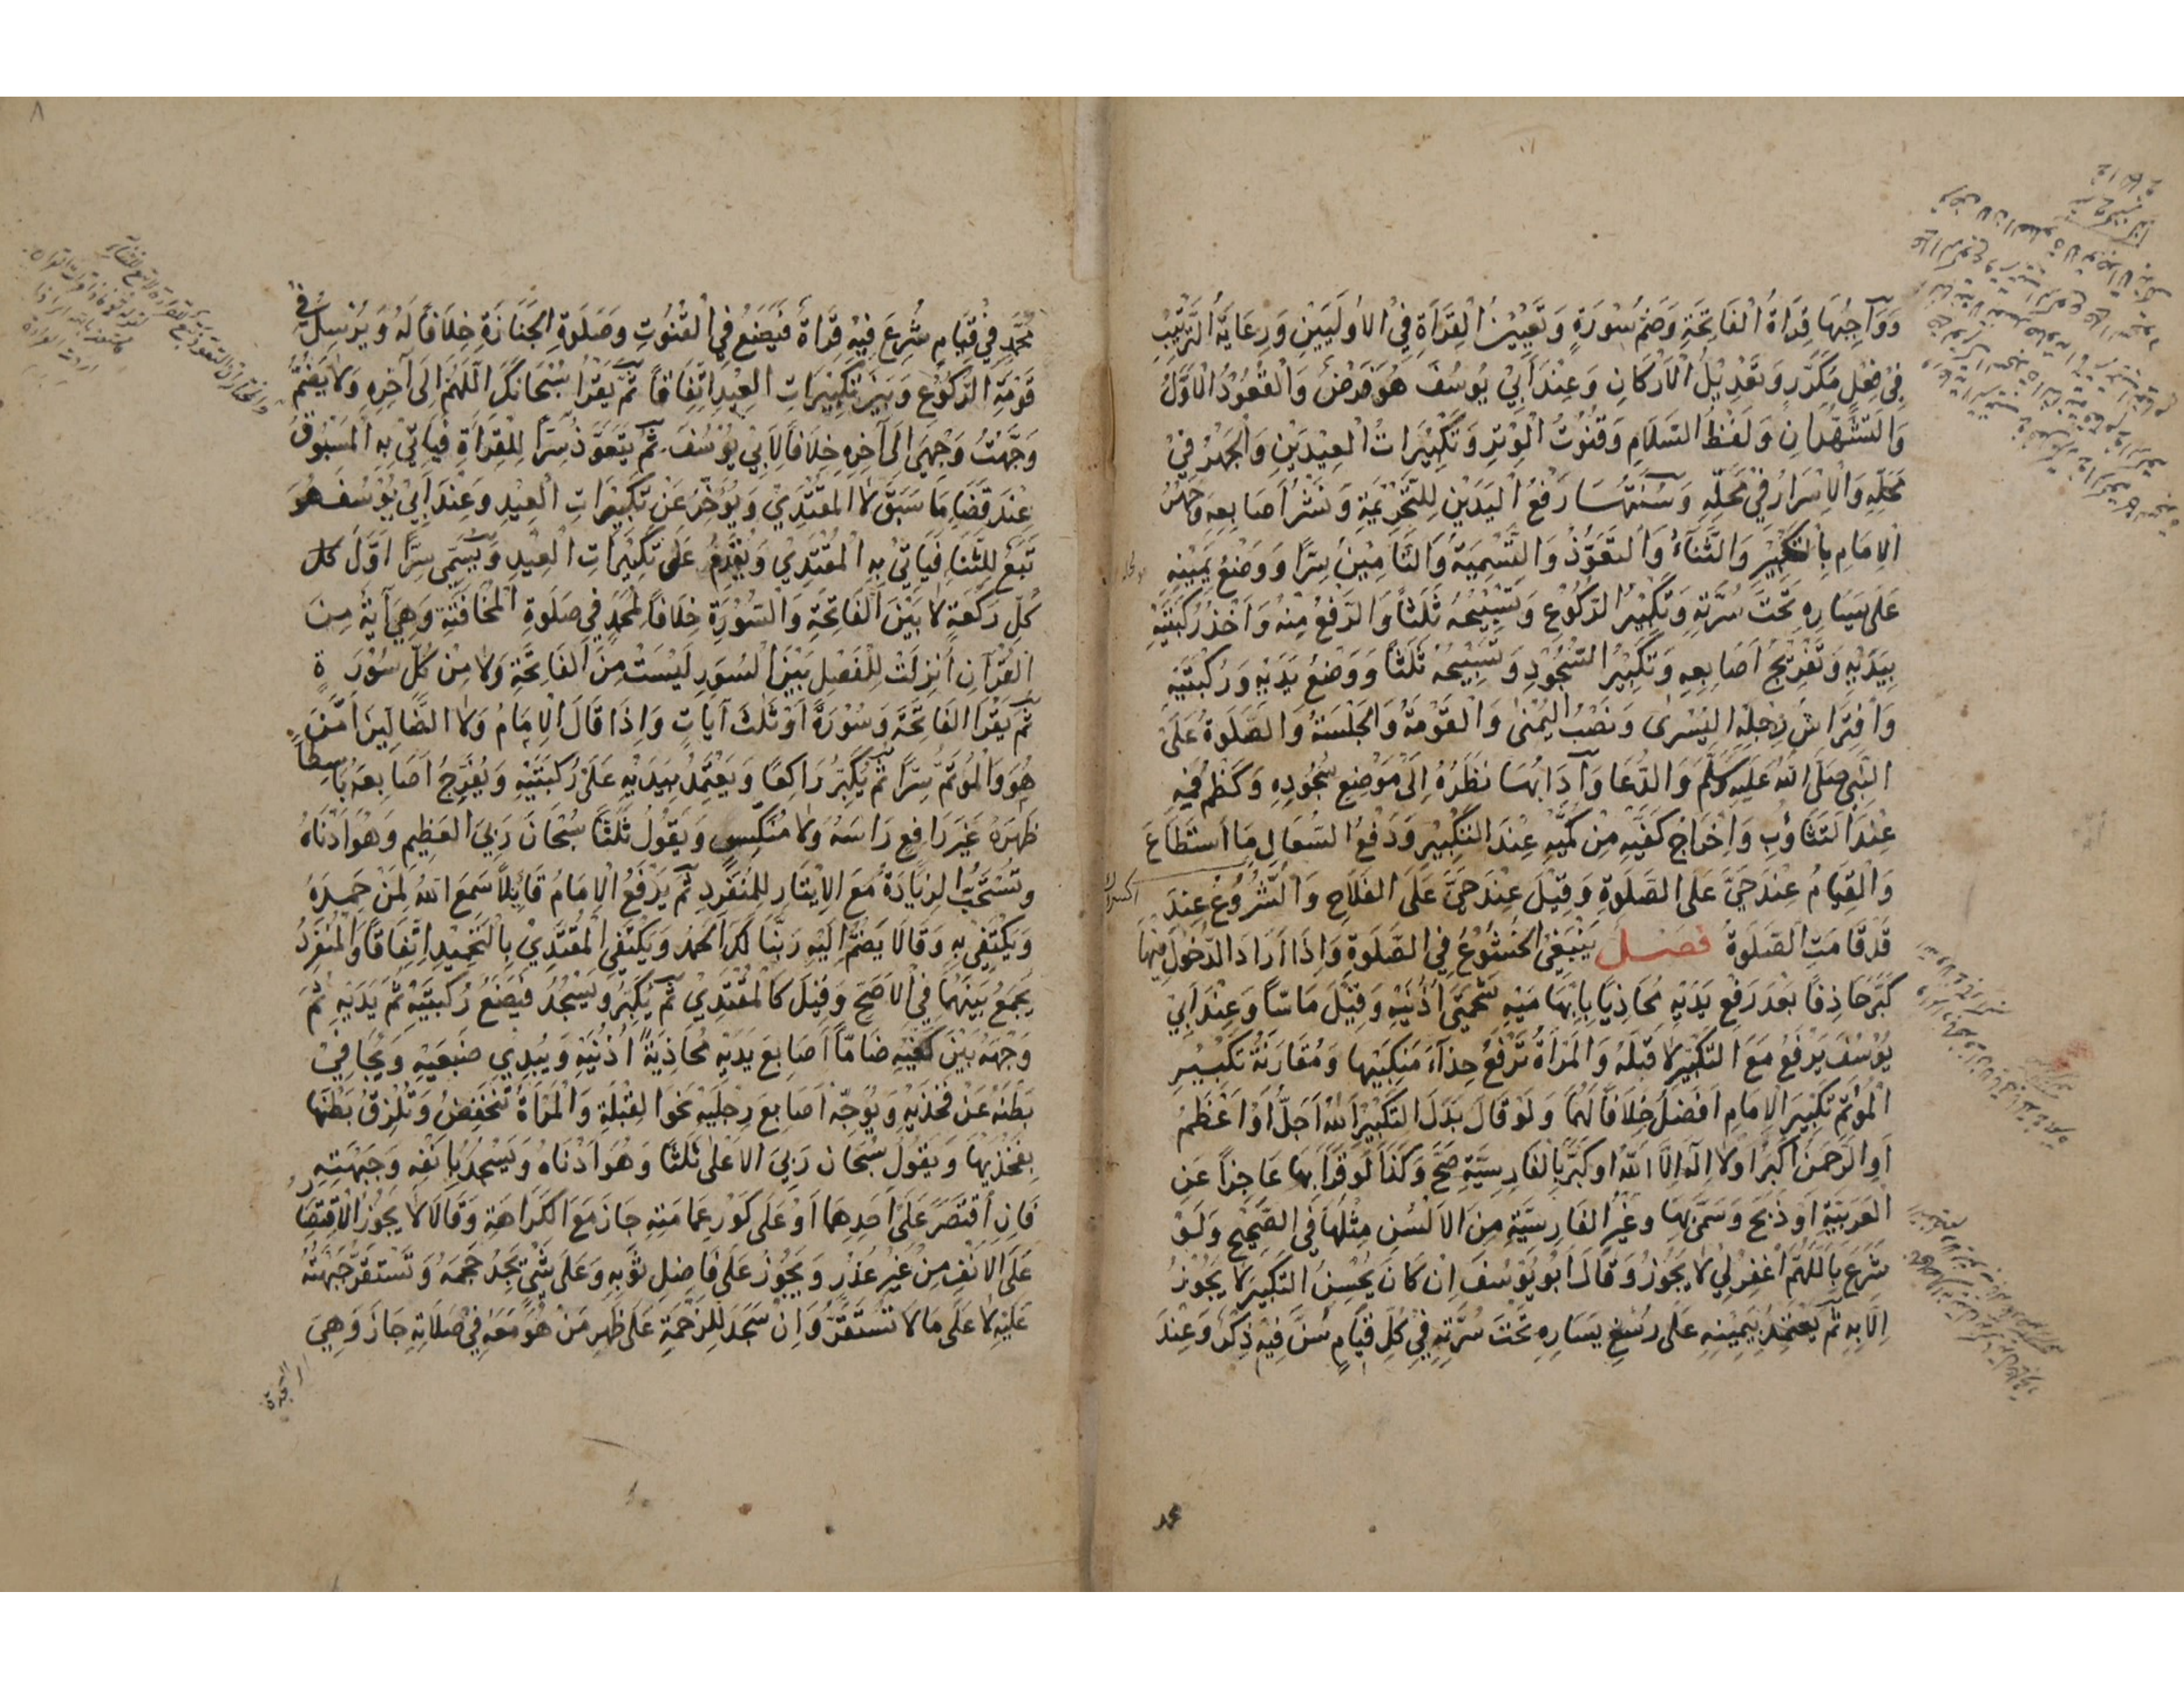 وَوَآجِبُهَا قِرَاةُ الْفَاتِحَةِ وَضَمُّ سُورَةٍ وَتَعْيِيْنُ الْقِرَاَةِ فِي الْاُولَيَيْنِ وَرِعَايَةُ التَّرْتِيْبِ
فِي فِعْلٍ مُكَرَّرٍ وَتَعْدِيْلُ الْاَرْكَانِ وَعِنْدَ اَبِيْ يُوسُفَ هُوَ فَرْضٌ وَالْقُعُوْدُ الْاَوَّلُ
وَالتَّشَهُّدَانِ وَلَفْظُ السَّلَامِ وَقُنُوْتُ الْوِتْرِ وَتَكْبِيْرَاتُ الْعِيْدَيْنِ وَالْجَهْرُ فِيْ
مَحَلِّهِ وَالْاِسْرَارُ فِيْ مَحَلِّهِ وَسُنَنُهَا رَفْعُ الْيَدَيْنِ لِلتَّحْرِيْمَةِ وَنَشْرُ اَصَابِعِهِ وَجَهْرُ
الْاِمَامِ بِالتَّكْبِيْرِ وَالثَّنَآءُ وَالتَّعَوُّذُ وَالتَّسْمِيَةُ وَالتَّامِيْنُ سِرًّا وَوَضْعُ يَمِيْنِهِ
عَلَى يَسَارِهِ تَحْتَ سُرَّتِهِ وَتَكْبِيْرُ الرُّكُوْعِ وَتَسْبِيْحُهُ ثَلَثًا وَالرَّفْعُ مِنْهُ وَاَخْذُ رُكْبَتَيْهِ
بِيَدَيْهِ وَتَفْرِيْجُ اَصَابِعِهِ وَتَكْبِيْرُ السُّجُوْدِ وَتَسْبِيْحُهُ ثَلَثًا وَوَضْعُ يَدَيْهِ وَرُكْبَتَيْهِ
وَافْتِرَاشُ رِجْلِهِ الْيُسْرٰى وَنَصْبُ الْيُمْنٰى وَالْقَوْمَةُ وَالْجَلْسَةُ وَالصَّلَوةُ عَلَى
النَّبِيِّ صَلَّى اللهُ عَلَيْهِ وَسَلَّمَ وَالدُّعَا وَآدَابُهَا نَظَرُهُ اِلَى مَوْضِعِ سُجُوْدِهِ وَكَظْمُ فَمِهِ
عِنْدَ التَّثَاؤُبِ وَاِخْرَاجُ كَفَّيْهِ مِنْ كُمَّيْهِ عِنْدَ التَّكْبِيْرِ وَدَفْعُ السُّعَالِ مَا اسْتَطَاعَ
وَالْقِيَامُ عِنْدَ حَيَّ عَلَى الصَّلَوةِ وَقِيْلَ عِنْدَ حَيَّ عَلَى الْفَلَاحِ وَالشُّرُوْعُ عِنْدَ
قَدْ قَامَتِ الصَّلَوةُ فصل يَنْبَغِي الْخُشُوْعُ فِي الصَّلَوةِ وَاِذَا اَرَادَ الدُّخُوْلَ فِيْهَا
كَبَّرَ حَاذِفًا بَعْدَ رَفْعِ يَدَيْهِ مُحَاذِيًا بِاِبْهَامَيْهِ شَحْمَتَيْ اُذُنَيْهِ وَقِيْلَ مَاسًّا وَعِنْدَ اَبِيْ
يُوْسُفَ يَرْفَعُ مَعَ التَّكْبِيْرِ لَا قَبْلَهُ وَالْمَرْاَةُ تَرْفَعُ حِذَآءَ مَنْكِبَيْهَا وَمُقَارَنَةُ تَكْبِيْرِ
الْمُؤْتَمِّ تَكْبِيْرَ الْاِمَامِ اَفْضَلُ خِلَافًا لَهُمَا وَلَوْ قَالَ بَدَلَ التَّكْبِيْرِ اَللهُ اَجَلُّ اَوْ اَعْظَمُ
اَوِ الرَّحْمٰنُ اَكْبَرُ اَوْ لَا اِلٰهَ اِلَّا اللهُ اَوْ كَبَّرَ بِالْفَارِسِيَّةِ صَحَّ وَكَذَا لَوْ قَرَاَ بِهَا عَاجِزًا عَنِ
الْعَرَبِيَّةِ اَوْ ذَبَحَ وَسَمَّى بِهَا وَغَيْرُ الْفَارِسِيَّةِ مِنَ الْاَلْسُنِ مِثْلُهَا فِي الصَّحِيْحِ وَلَوْ
شَرَعَ بِاَللّٰهُمَّ اغْفِرْ لِيْ لَا يَجُوْزُ وَقَالَ اَبُو يُوْسُفَ اِنْ كَانَ يُحْسِنُ التَّكْبِيْرَ لَا يَجُوْزُ
اِلَّا بِهِ ثُمَّ يَعْتَمِدُ بِيَمِيْنِهِ عَلَى رُسْغِ يَسَارِهِ تَحْتَ سُرَّتِهِ فِيْ كُلِّ قِيَامٍ سُنَّ فِيْهِ ذِكْرٌ وَعِنْدَ
محمد
٨
مُحَمَّدٍ فِيْ قِيَامٍ شُرِعَ فِيْهِ قِرَاةٌ فَيَضَعُ فِي الْقُنُوْتِ وَصَلَوةِ الْجَنَازَةِ خِلَافًا لَهُ وَيُرْسِلُ فِيْ
قَوْمَةِ الرُّكُوْعِ وَبَيْنَ تَكْبِيْرَاتِ الْعِيْدِ اِتِّفَاقًا ثُمَّ يَقْرَاُ سُبْحَانَكَ اللّٰهُمَّ اِلَى آخِرِهِ وَلَا يَضُمُّ
وَجَّهْتُ وَجْهِيَ اِلَى آخِرِهِ خِلَافًا لِاَبِيْ يُوْسُفَ ثُمَّ يَتَعَوَّذُ سِرًّا لِلْقِرَاَةِ فَيَاتِيْ بِهِ الْمَسْبُوْقُ
عِنْدَ قَضَاءِ مَا سَبَقَ لَا الْمُقْتَدِيْ وَيُؤَخِّرُ عَنْ تَكْبِيْرَاتِ الْعِيْدِ وَعِنْدَ اَبِيْ يُوْسُفَ هُوَ
تَبَعٌ لِلثَّنَاءِ فَيَاتِيْ بِهِ الْمُقْتَدِيْ وَيُقَدِّمُ عَلَى تَكْبِيْرَاتِ الْعِيْدِ وَيُسَمِّى سِرًّا اَوَّلَ كل
كُلِّ رَكْعَةٍ لَا بَيْنَ الْفَاتِحَةِ وَالسُّوْرَةِ خِلَافًا لِمُحَمَّدٍ فِي صَلَوةِ الْمُخَافَتَةِ وَهِيَ آيَةٌ مِنَ
الْقُرْآنِ اُنْزِلَتْ لِلْفَصْلِ بَيْنَ السُّوَرِ لَيْسَتْ مِنَ الْفَاتِحَةِ وَلَا مِنْ كُلِّ سُوْرَةٍ
ثُمَّ يَقْرَاُ الْفَاتِحَةَ وَسُوْرَةً اَوْ ثَلٰثَ آيَاتٍ وَاِذَا قَالَ الْاِمَامُ وَلَا الضَّالِّيْنَ اَمَّنَ
هُوَ وَالْمُؤْتَمُّ سِرًّا ثُمَّ يُكَبِّرُ رَاكِعًا وَيَعْتَمِدُ بِيَدَيْهِ عَلَى رُكْبَتَيْهِ وَيُفَرِّجُ اَصَابِعَهُ بَاسِطًا
ظَهْرَهُ غَيْرَ رَافِعٍ رَاسَهُ وَلَا مُنَكِّسٍ وَيَقُوْلُ ثَلٰثًا سُبْحَانَ رَبِّيَ الْعَظِيْمِ وَهُوَ اَدْنَاهُ
وَتُسْتَحَبُّ الزِّيَادَةُ مَعَ الْاِيْتَارِ لِلْمُنْفَرِدِ ثُمَّ يَرْفَعُ الْاِمَامُ قَائِلًا سَمِعَ اللهُ لِمَنْ حَمِدَهُ
وَيَكْتَفِيْ بِهِ وَقَالَا يَضُمُّ اِلَيْهِ رَبَّنَا لَكَ الْحَمْدُ وَيَكْتَفِي الْمُقْتَدِيْ بِالتَّحْمِيْدِ اِتِّفَاقًا وَالْمُنْفَرِدُ
يَجْمَعُ بَيْنَهُمَا فِي الْاَصَحِّ وَقِيْلَ كَالْمُقْتَدِيْ ثُمَّ يُكَبِّرُ وَيَسْجُدُ فَيَضَعُ رُكْبَتَيْهِ ثُمَّ يَدَيْهِ ثُمَّ
وَجْهَهُ بَيْنَ كَفَّيْهِ ضَامًّا اَصَابِعَ يَدَيْهِ مُحَاذِيَةً اُذُنَيْهِ وَيُبْدِيْ ضَبْعَيْهِ وَيُجَافِيْ
بَطْنَهُ عَنْ فَخِذَيْهِ وَيُوَجِّهُ اَصَابِعَ رِجْلَيْهِ نَحْوَ الْقِبْلَةِ وَالْمَرْاَةُ تَنْخَفِضُ وَتُلْزِقُ بَطْنَهَا
بِفَخِذَيْهَا وَيَقُوْلُ سُبْحَانَ رَبِّيَ الْاَعْلٰى ثَلٰثًا وَهُوَ اَدْنَاهُ وَيَسْجُدُ بِاَنْفِهِ وَجَبْهَتِهِ
فَاِنِ اقْتَصَرَ عَلَى اَحَدِهِمَا اَوْ عَلَى كَوْرِ عِمَامَتِهِ جَازَ مَعَ الْكَرَاهَةِ وَقَالَا لَا يَجُوْزُ الْاِقْتِصَا
عَلَى الْاَنْفِ مِنْ غَيْرِ عُذْرٍ وَيَجُوْزُ عَلَى فَاضِلِ ثَوْبِهِ وَعَلَى شَيْئٍ يَجِدُ حَجْمَهُ وَتَسْتَقِرُّ جَبْهَتُهُ
عَلَيْهِ لَا عَلَى مَا لَا تَسْتَقِرُّ وَاِنْ سَجَدَ لِلزَّحْمَةِ عَلَى ظَهْرِ مَنْ هُوَ مَعَهُ فِيْ صَلَاتِهِ جَازَ وَهِيَ